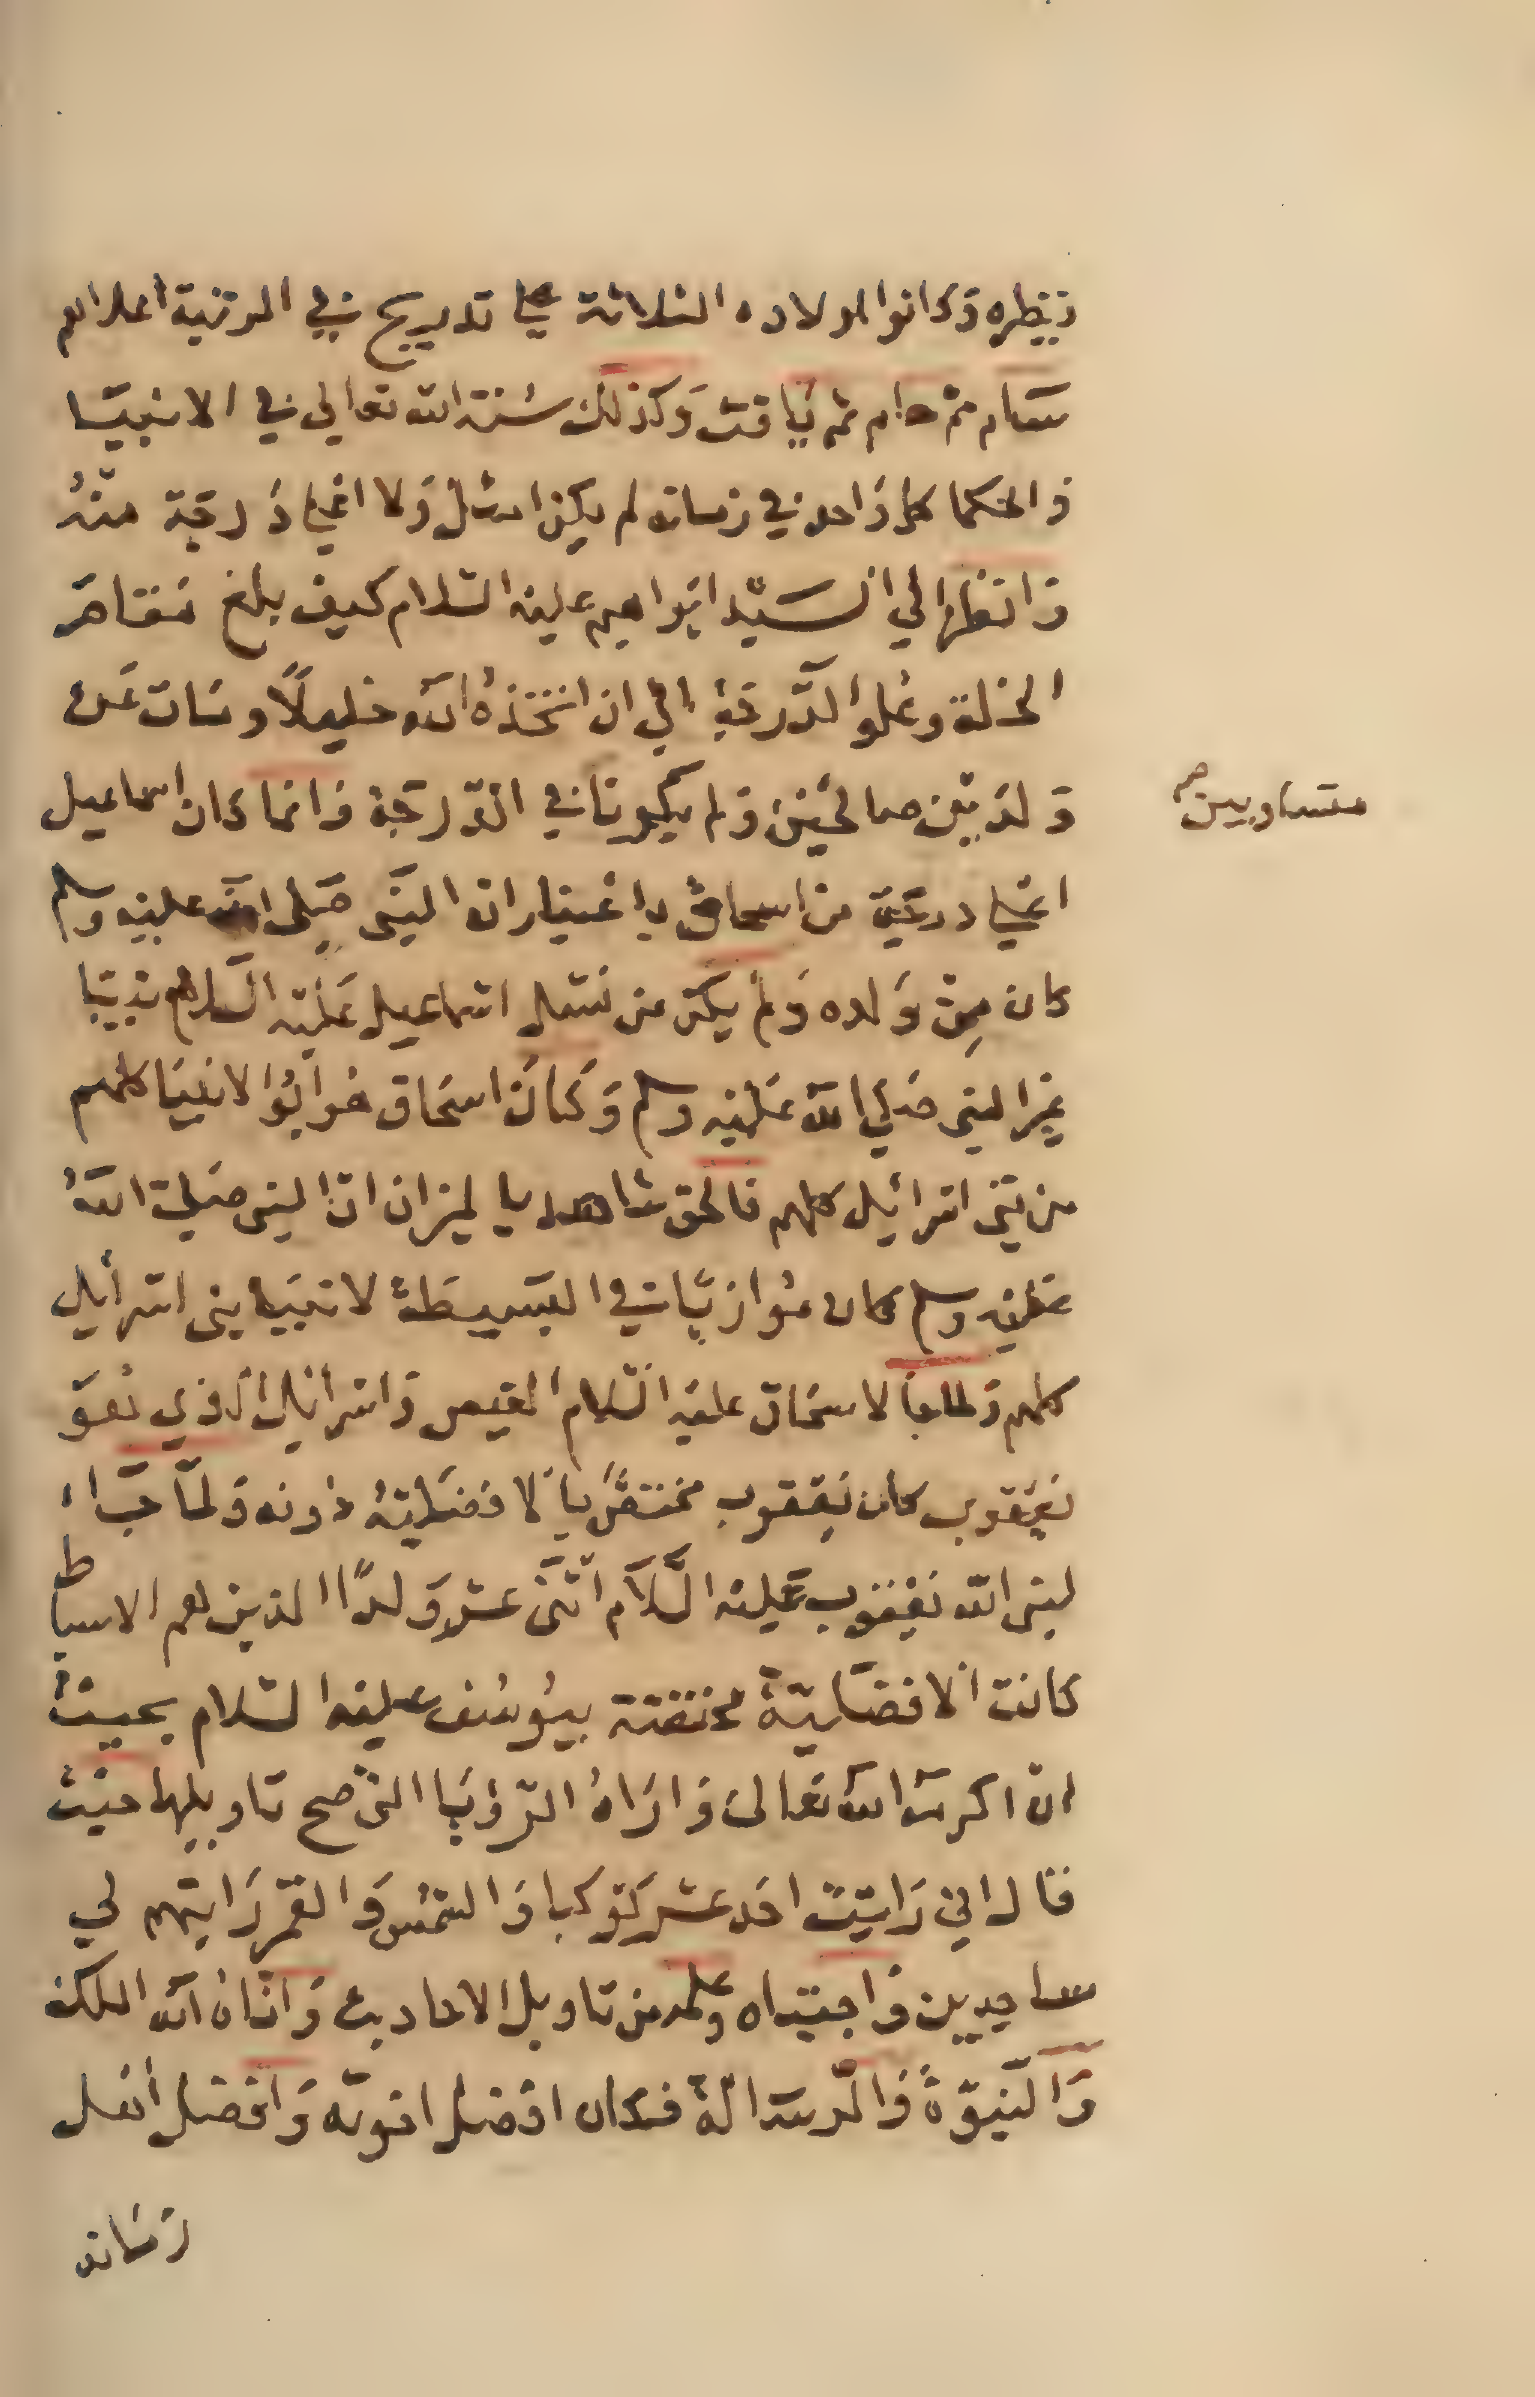 نظره وكانوا اولاده الثلاثة علي تدريج في المرتبة اعلاهم
سام ثم حام ثم يافث وكذلك سنة الله تعالي في الانبيا
والحكما كل واحد في زمانه لم يكن امثل ولا اعلي درجة منه
وانظر الي السيد ابراهيم عليه السلام كيف بلغ مقام
الخلة وعلو الدرجة الي ان اتخذه الله خليلًا ومات عن
ولدين صالحين ولم يكونا في الدرجة وانما كان اسماعيل
متساويين صح
اعلي درجة من اسحاق باعتبار ان النبي صلى الله عليه وسلم
كان من ولده ولم يكن من نسل اسماعيل عليه السلام نبيا
غير النبي صلي الله عليه وسلم وكان اسحاق هو ابو الانبيا كلهم
من بني اسرائيل كلهم فالحق شاهد بالميزان ان النبي صلي الله
عليه وسلم كان موازيا في البسيطة لانبيا بني اسرائيل
كلهم ولما جا لاسحاق عليه السلام العيص واسرائيل الذي هو
يعقوب كان يعقوب مختصا بالافضلية دونه ولما جا
لنبي الله يعقوب عليه السلام اثني عشر ولدًا الذين هم الاسباط
كانت الافضلية مختصة بيوسف عليه السلام بحيث
ان اكرمه الله تعالى واراه الرؤيا التي صح تاويلها حيث
قال اني رايت احد عشر كوكبا والشمس والقمر رايتهم لي
ساجدين واجتباه وعلمه من تاويل الاحاديث واتاه الله الملك
والنبوة والرسالة فكان افضل اخوته وافضل اهل
زمانه